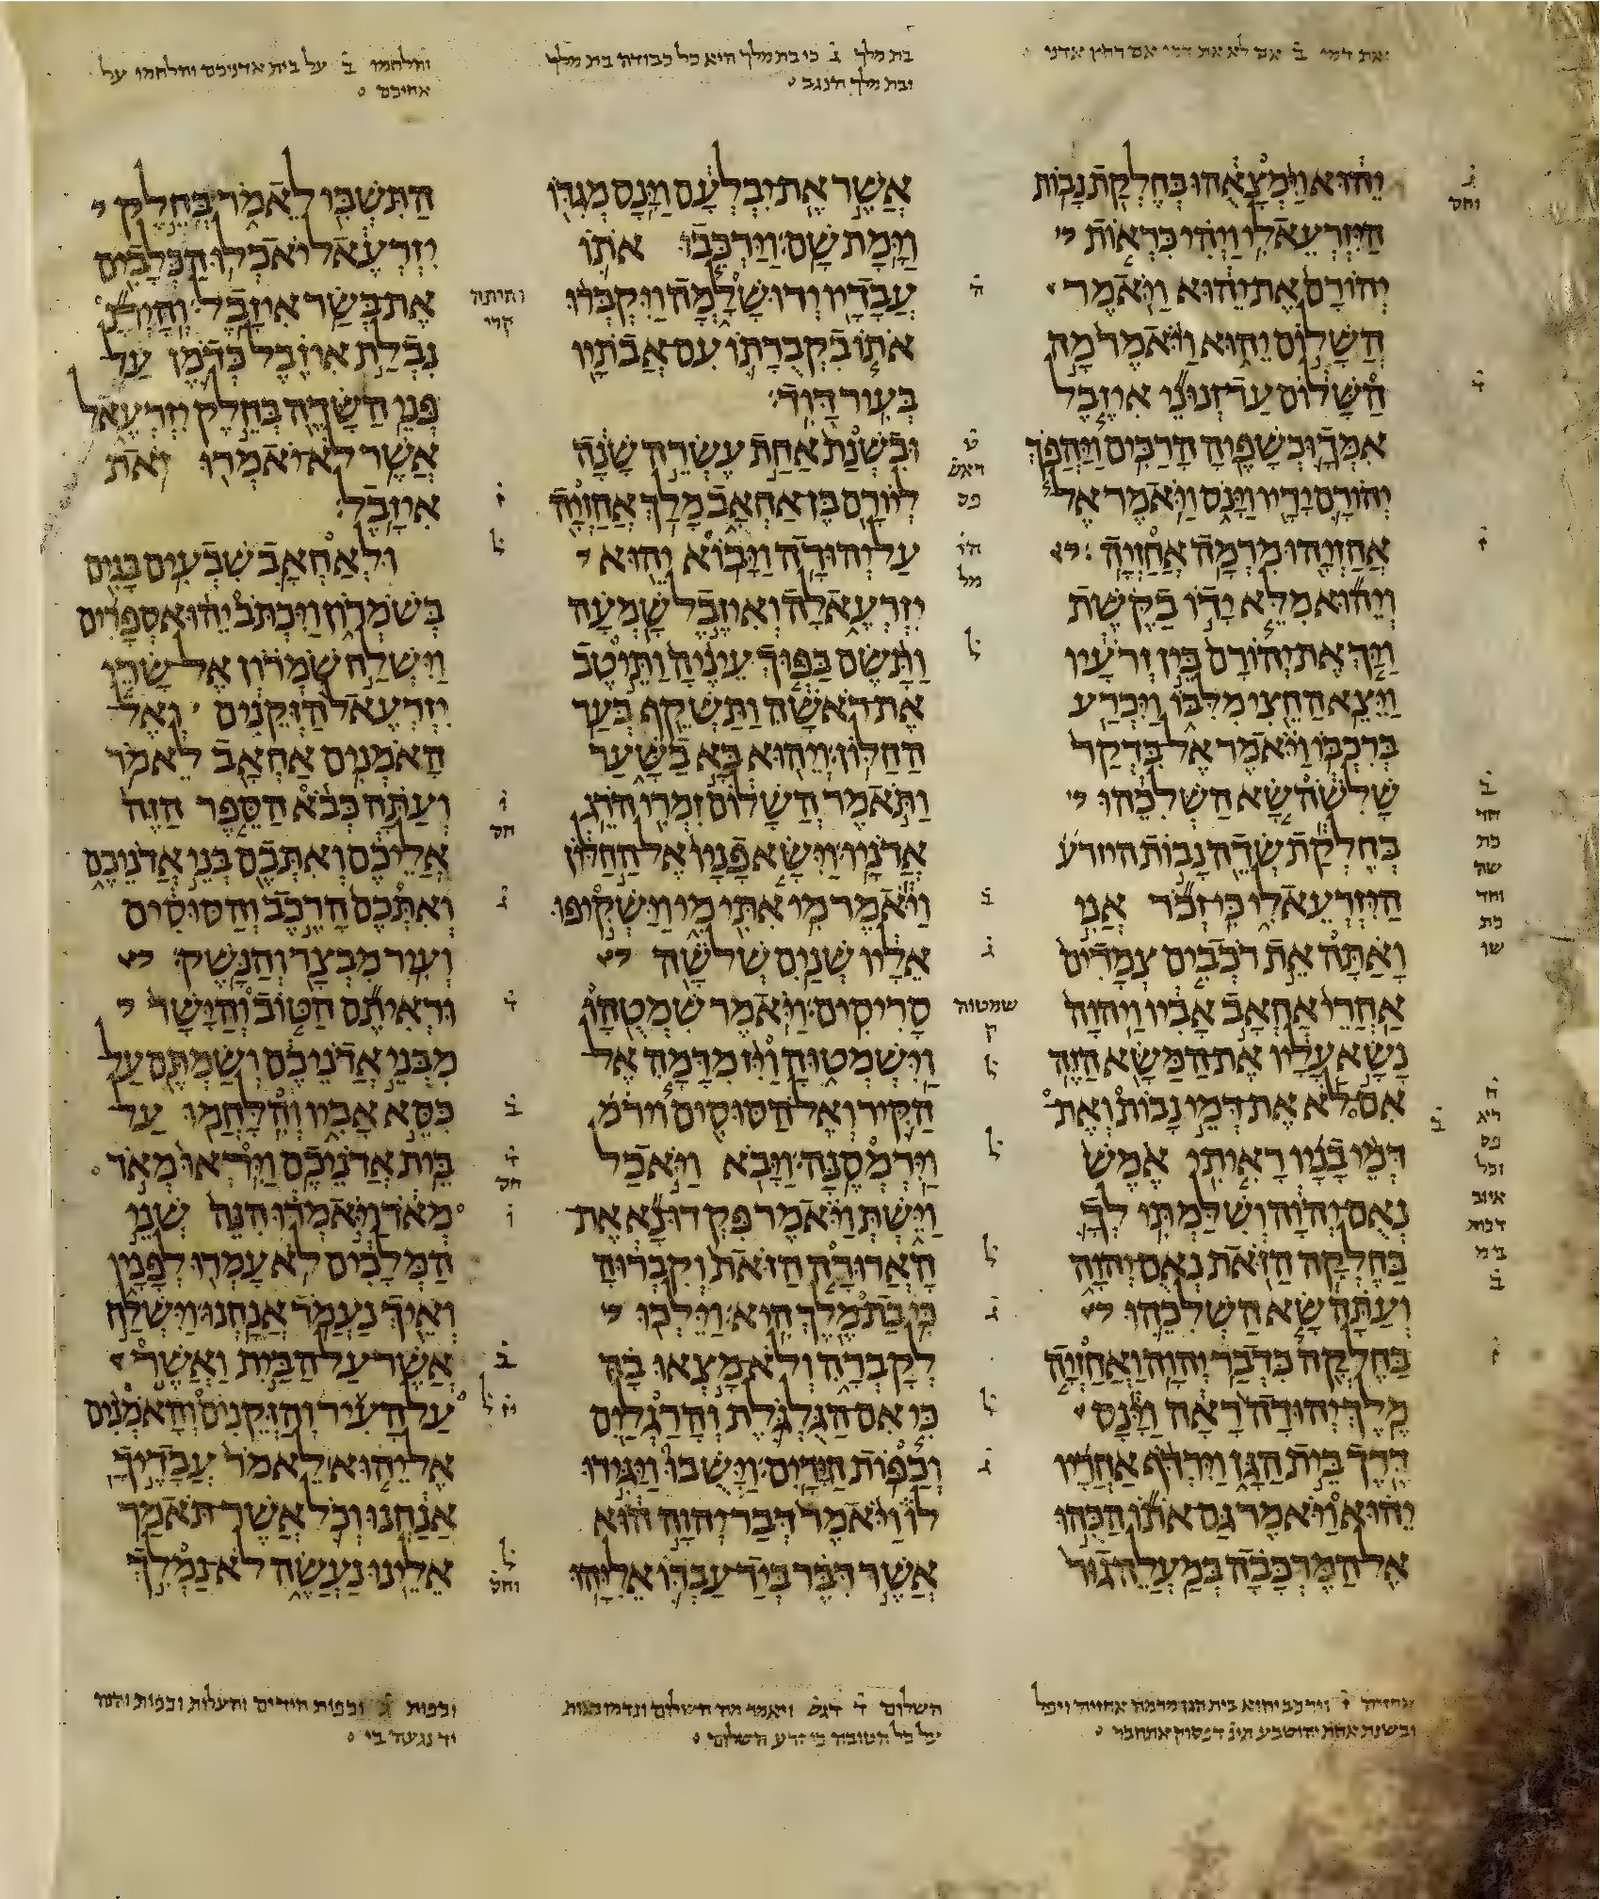 ואת דמי ב אם לא את דמי אם רחץ אדני
בת מלך ג כי בת מלך היא כל כבודה בת מלך
ובת מלך הנגב
והלחמו ב על בית אדניכם והלחמו על
אחיכם
יהוא וימצאהו בחלקת נבות
היזרעאלי ויהי כראות
יהורם את יהוא ויאמר
השלום יהוא ויאמר מה
השלום עד זנוני איזבל
אמך וכשפיה הרבים ויהפך
יהורם ידיו וינס ויאמר אל
אחזיהו מרמה אחזיה
ויהוא מלא ידו בקשת
ויך את יהורם בין זרעיו
ויצא החצי מלבו ויכרע
ברכבו ויאמר אל בדקר
שלשה שא השלכהו
בחלקת שדה נבות היזרע
היזרעאלי כי זכר אני
ואתה את רכבים צמדים
אחרי אחאב אביו ויהוה
נשא עליו את המשא הזה
אם לא את דמי נבות ואת
דמי בניו ראיתי אמש
נאם יהוה ושלמתי לך
בחלקה הזאת נאם יהוה
ועתה שא השלכהו
בחלקה כדבר יהוה ואחזיה
מלך יהודה ראה וינס
דרך בית הגן וירדף אחריו
יהוא ויאמר גם אתו הכהו
אל המרכבה במעלה גור
אשר את יבלעם וינס מגדו
וימת שם וירכבו אתו
עבדיו ירושלמה ויקברו
אתו בקברתו עם אבתיו
בעיר דוד
ובשנת אחת עשרה שנה
ליורם בן אחאב מלך אחזיה
על יהודה ויבוא יהוא
יזרעאלה ואיזבל שמעה
ותשם בפוך עיניה ותיטב
את ראשה ותשקף בעד
החלון ויהוא בא בשער
ותאמר השלום זמרי הרג
אדניו וישא פניו אל החלון
ויאמר מי אתי מי וישקיפו
אליו שנים שלשה
סריסים ויאמר שמטהו
וישמטוה ויז מדמה אל
הקיר ואל הסוסים וירמ
וירמסנה ויבא ויאכל
וישת ויאמר פקדו נא את
הארורה הזאת וקברוה
כי בת מלך היא וילכו
לקברה ולא מצאו בה
כי אם הגלגלת והרגלים
וכפות הידים וישבו ויגידו
לו ויאמר דבר יהוה הוא
אשר דבר ביד עבדו אליהו
התשבי לאמר בחלק
יזרעאל יאכלו הכלבים
את בשר איזבל והית
נבלת איזבל כדמן על
פני השדה בחלק יזרעאל
אשר לא יאמרו זאת
איזבל
ולאחאב שבעים בנים
בשמרון ויכתב יהוא ספרים
וישלח שמרון אל שרי
יזרעאל הזקנים ואל
האמנים אחאב לאמר
ועתה כבא הספר הזה
אליכם ואתכם בני אדניכם
ואתכם הרכב והסוסים
ועיר מבצר והנשק
וראיתם הטוב והישר
מבני אדניכם ושמתם על
כסא אביו והלחמו על
בית אדניכם ויראו מאד
מאד ויאמרו הנה שני
המלכים לא עמדו לפניו
ואיך נעמד אנחנו וישלח
אשר על הבית ואשר
על העיר והזקנים והאמנים
אל יהוא לאמר עבדיך
אנחנו וכל אשר תאמר
אלינו נעשה לא נמלך
אחזיה ז וירכב יהוא בית הגן מרמה אחזיה ויפל
ובשנת אחת יהושבע
השלום ד דגש ויאמר מה השלום ונדמו נאות
על כל הטובה כי זרע השלום
וכפות ג וכפות הידים והעלות וכפות והנה
יד נגעה בי